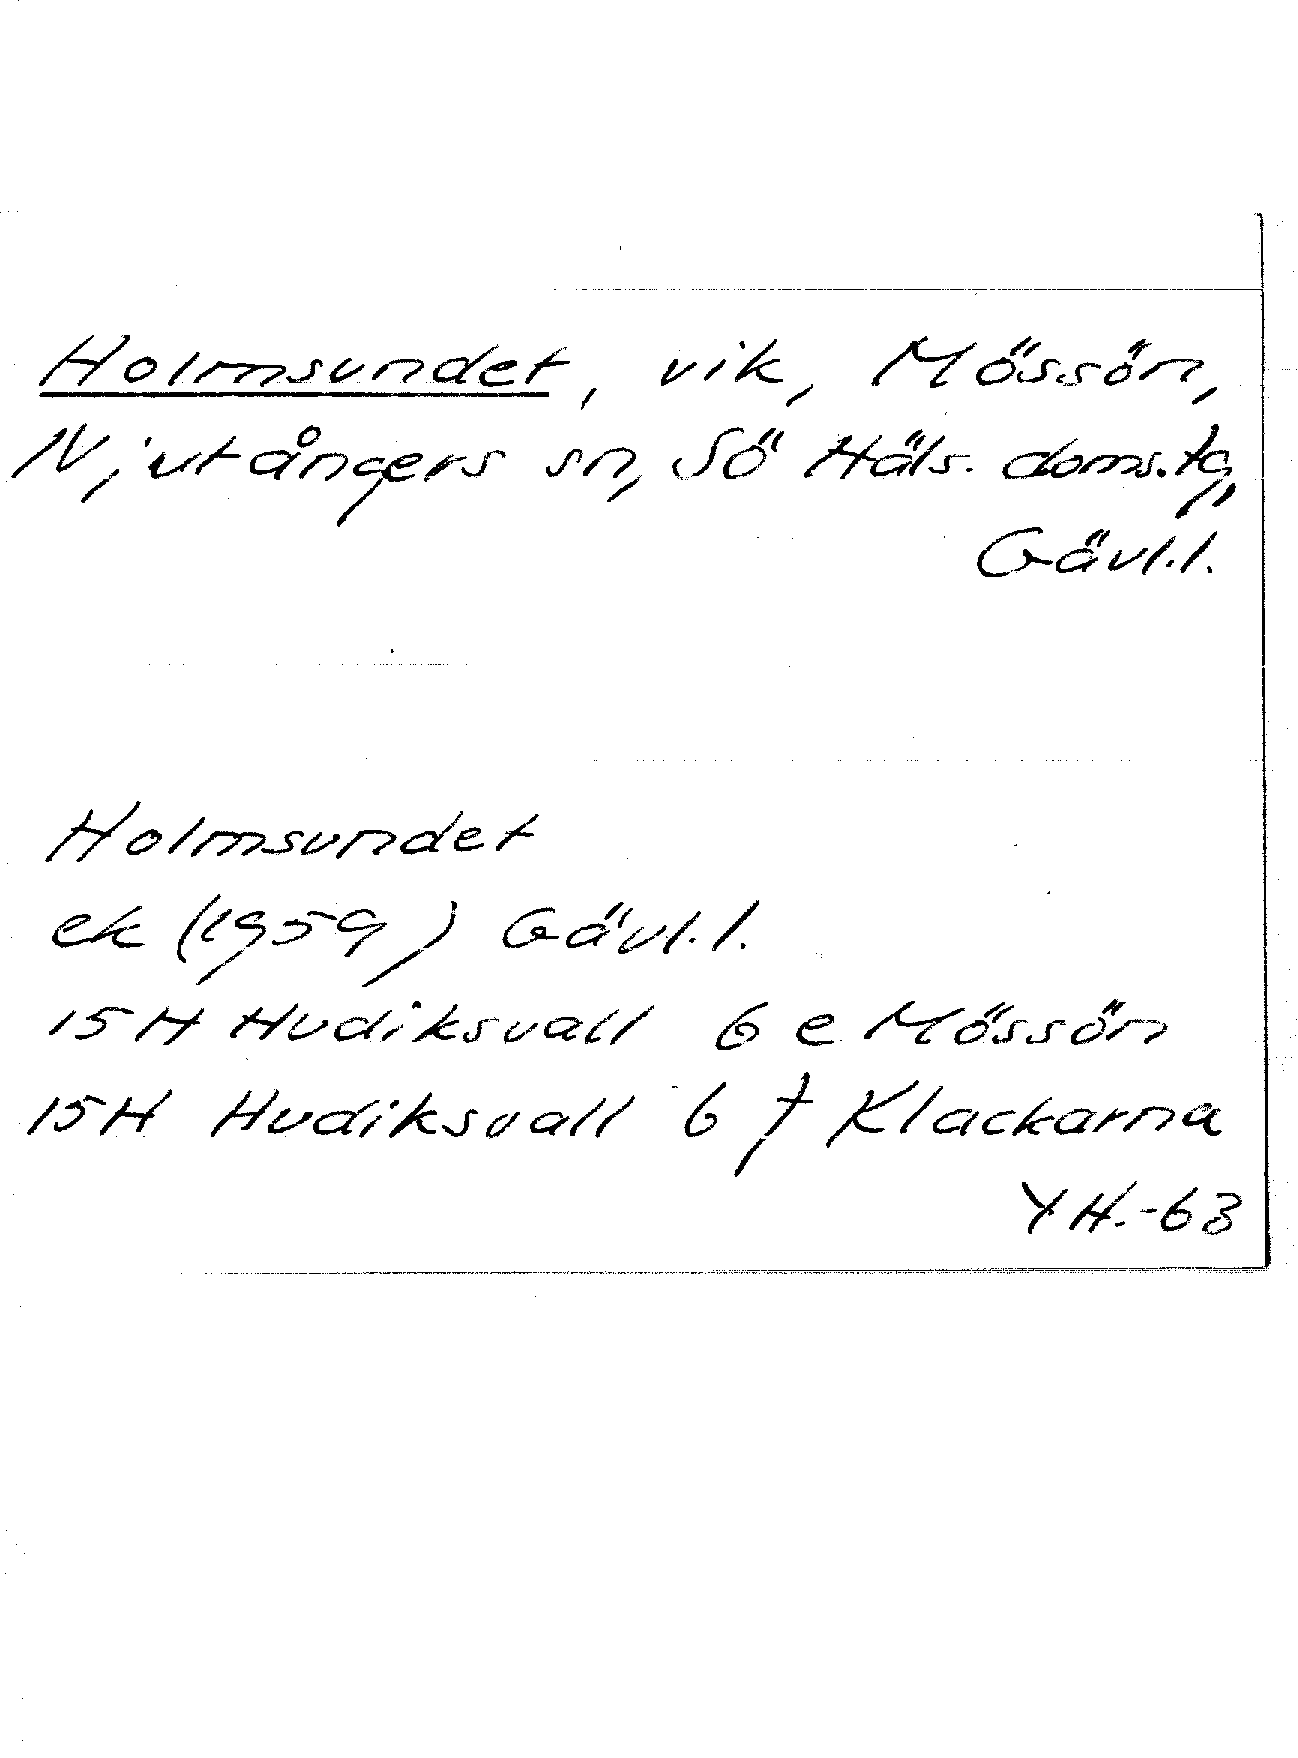 Holmsundet, vik, Mössön,
Njutångers sn, Sö Häls. doms.tg,
Gävl.l.
Holmsundet
ek (1959) Gävl.l.
15H Hudiksvall 6 e Mössön
15H Hudiksvall 6 f Klackarna
YH.-63